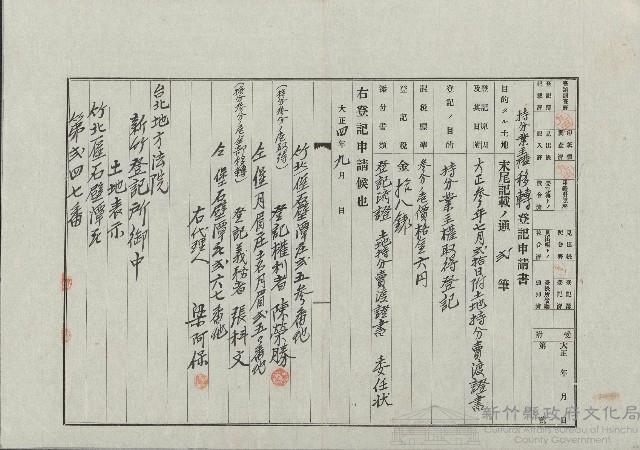 持分業主權移轉登記申請書
目的タル土地 末尾記載ノ通 貳筆
登記原因及其日附 大正參年七月貳拾日附土地持分賣渡證書
登記ノ目的 持分業主權取得登記
課税標準 參分ノ壱價格金六円
登記税 金拾八錢
添付書類 登記済證 土地持分賣渡證書 委任状
右登記申請候也
大正四年九月 日
(持分參分ノ壱取得)
竹北一保石壁潭庄貳五參番地
登記權利者 陳榮勝
仝保月眉庄土名月眉貳五〇番地
(持分參分ノ壱全部移轉)
登記義務者 張科文
仝保石壁潭庄貳六七番地
右代理人 梁阿保
台北地方法院
新竹登記所御中
土地表示
竹北一保石壁潭庄
第貳四七番
受附 大正 年 月 日
第 號
新竹縣政府文化局
Cultural Affairs Bureau of Hsinchu
County Government